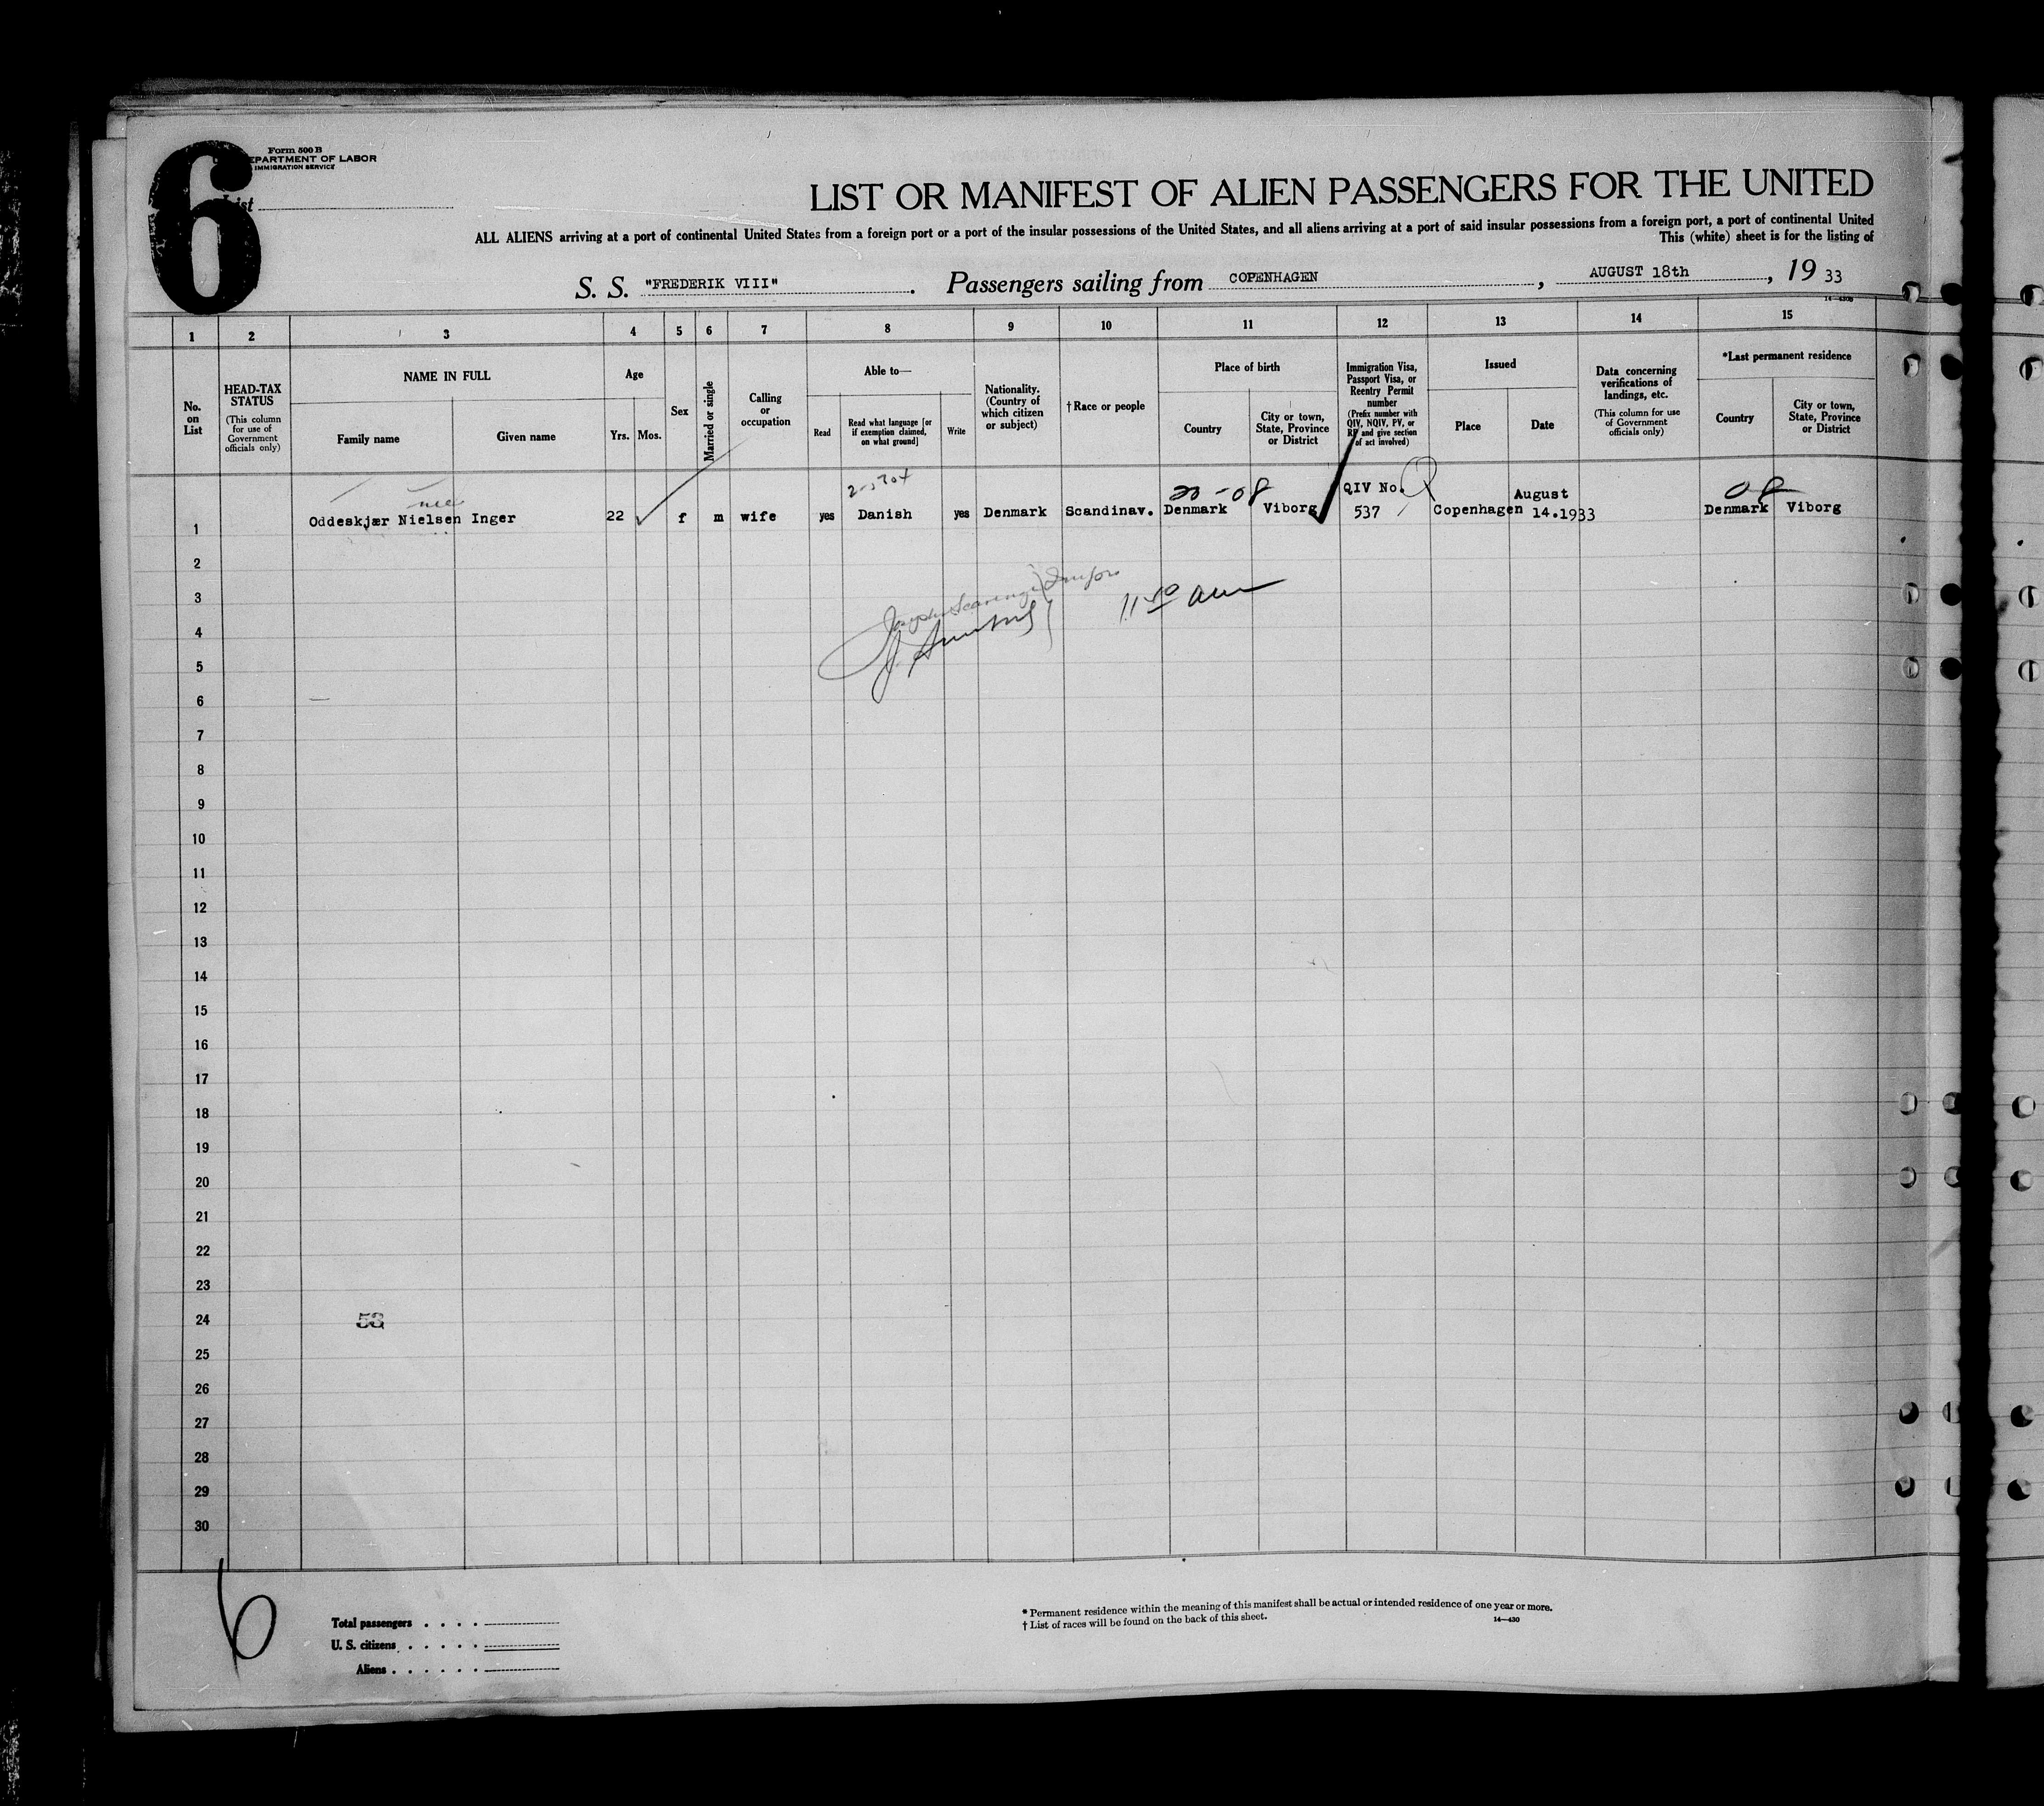 6
Form 500 B
EPARTMENT OF LABOR
IMMIGRATION SERVICE
List
LIST OR MANIFEST OF ALIEN PASSENGERS FOR THE UNITED
ALL ALIENS arriving at a port of continental United States from a foreign port or a port of the insular possessions of the United States, and all aliens arriving at a port of said insular possessions from a foreign port, a port of continental United
This (white) sheet is for the listing of
S. S. "FREDERIK VIII". Passengers sailing from COPENHAGEN, AUGUST 18th, 19 33
14-430B
1 2 3 4 5 6 7 8 9 10 11 12 13 14 15
No. on List
HEAD-TAX STATUS
(This column for use of Government officials only)
NAME IN FULL
Family name
Given name
Age
Yrs. Mos.
Sex
Married or single
Calling or occupation
Able to—
Read
Read what language [or if exemption claimed, on what ground]
Write
Nationality. (Country of which citizen or subject)
†Race or people
Place of birth
Country
City or town, State, Province or District
Immigration Visa, Passport Visa, or Reentry Permit number
(Prefix number with QIV, NQIV, PV, or RP and give section of act involved)
Issued
Place
Date
Data concerning verifications of landings, etc.
(This column for use of Government officials only)
*Last permanent residence
Country
City or town, State, Province or District
nee
20-08
QIV No.
Q
August
08
1 Oddeskjær Nielsen Inger 22 f m wife yes Danish yes Denmark Scandinav. Denmark Viborg 537 Copenhagen 14.1933 Denmark Viborg
2
3
4
5
6
7
8
9
10
11
12
13
14
15
16
17
18
19
20
21
22
23
24
25
26
27
28
29
30
6
Total passengers . . . .
U. S. citizens . . . . .
Aliens . . . . . .
* Permanent residence within the meaning of this manifest shall be actual or intended residence of one year or more.
† List of races will be found on the back of this sheet.
14-430